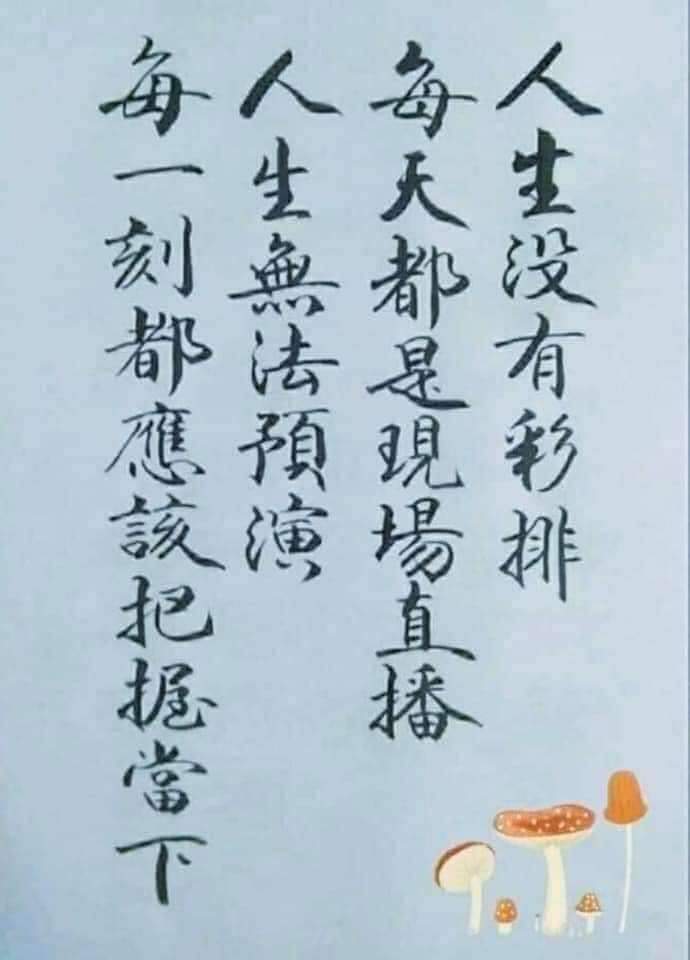 人生没有彩排
每天都是現場直播
人生無法預演
每一刻都應該把握當下